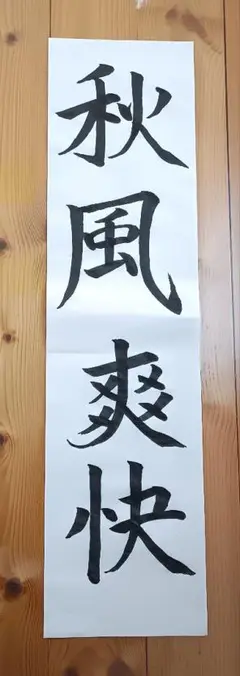 秋風爽快